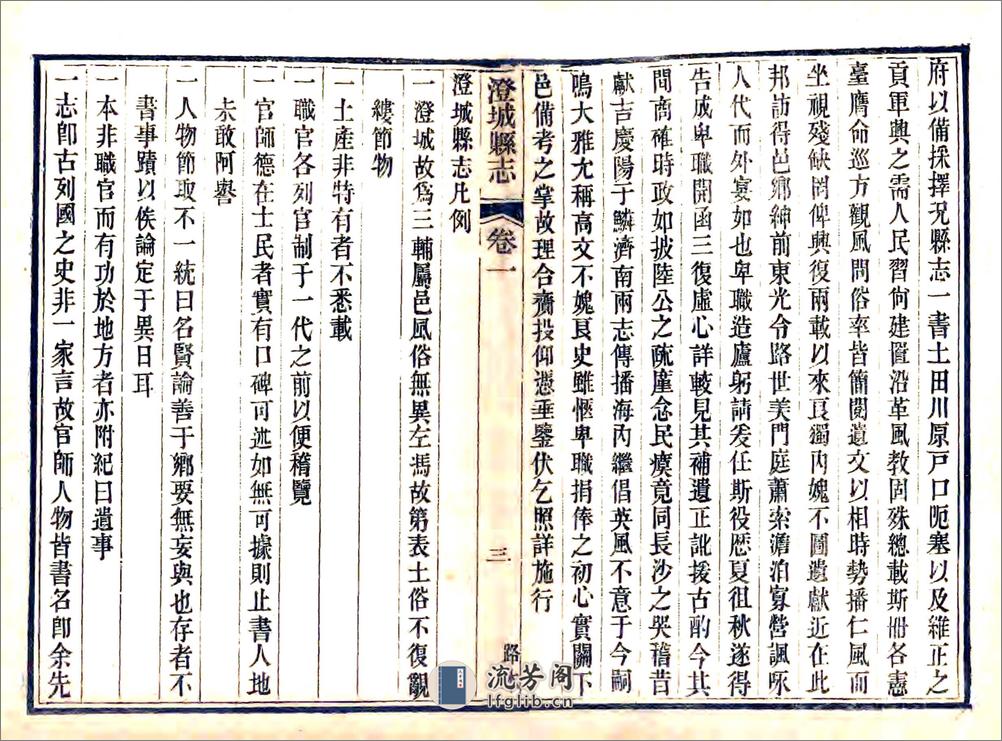 府以備採擇况縣志一書土田川原戸口阨塞以及維正之
貢軍興之需人民習尙建置沿革風教固殊總載斯册各憲
臺膺命巡方觀風問俗率皆簡閱遺文以相時勢播仁風而
坐視殘缺罔俾興復兩載以來㫰獨內媿不圖遺獻近在此
邦訪得邑鄉紳前東光令路世美門庭蕭索澹泊寡營諷咏
人代而外宴如也卑職造廬躬請爰任斯役歷夏徂秋遂得
告成卑職開函三復虛心詳較見其補遺正訛援古酌今其
間商確時政如披陸公之疏廑念民瘼竟同長沙之哭稽昔
獻吉慶陽于鱗濟南兩志傳播海內繼倡英風不意于今嗣
鳴大雅允稱高文不媿良史雖愜卑職捐俸之初心實關下
邑備考之掌故理合齎投仰憑垂鑒伏乞照詳施行
澄城縣志 卷一 三 路
澄城縣志凡例
一澄城故爲三輔屬邑風俗無異左馮故第表土俗不復覼
縷節物
一土產非特有者不悉載
一職官各列官制于一代之前以便稽覽
一官師德在士民者實有口碑可述如無可據則止書人地
未敢阿譽
一人物節取不一統曰名賢論善于鄉要無妄與也存者不
書事蹟以俟論定于異日耳
一本非職官而有功於地方者亦附紀曰遺事
一志卽古列國之史非一家言故官師人物皆書名卽余先
流芳閣
lfglib.cn